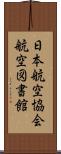 日本航空協会
航空図書館